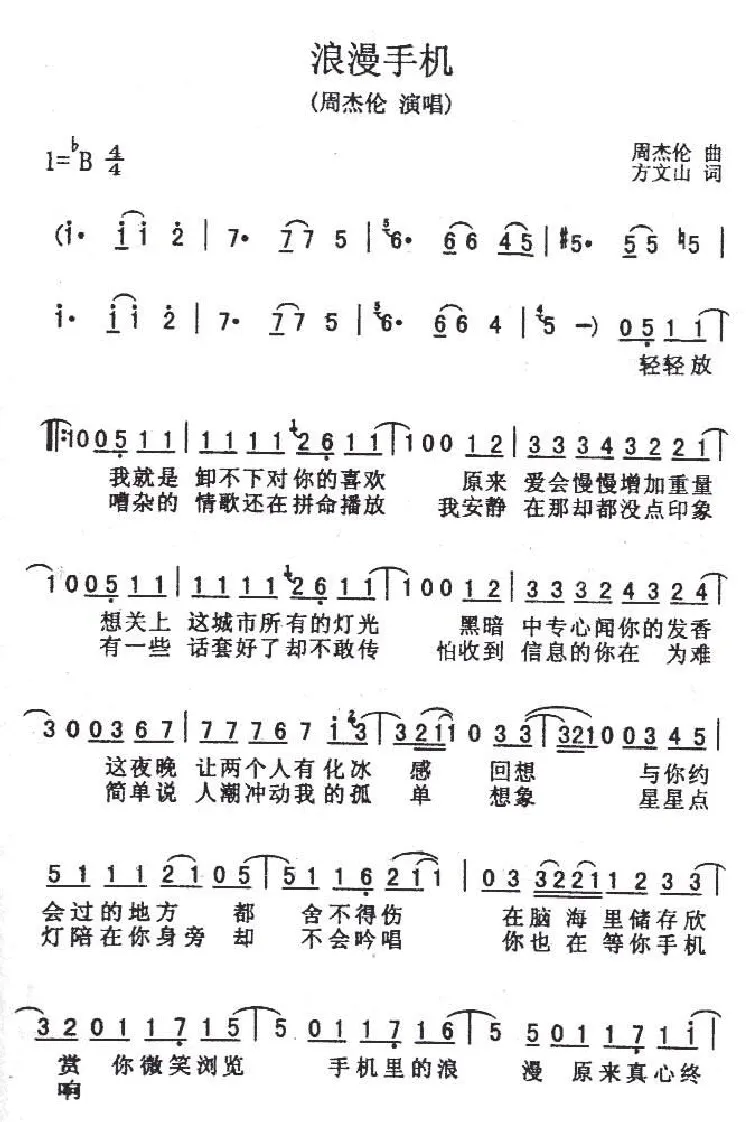 浪漫手机
(周杰伦 演唱)
1=♭B 4/4
周杰伦 曲
方文山 词
(i· i i 2 | 7· 7 7 5 | 6· 6 6 4 5 | #5· 5 5 ♮5 |
i· i i 2 | 7· 7 7 5 | 6· 6 6 4 | 5 —) 0 5 1 1
轻轻放
1 0 0 5 1 1 | 1 1 1 1 2 6 1 1 | 1 0 0 1 2 | 3 3 3 4 3 2 2 1 |
我就是 卸不下对你的喜欢 原来 爱会慢慢增加重量
嘈杂的 情歌还在拼命播放 我安静 在那却都没点印象
1 0 0 5 1 1 | 1 1 1 1 2 6 1 1 | 1 0 0 1 2 | 3 3 3 2 4 3 2 4 |
想关上 这城市所有的灯光 黑暗 中专心闻你的发香
有一些 话套好了却不敢传 怕收到 信息的你在 为难
3 0 0 3 6 7 | 7 7 7 6 7 i 3 | 3 2 1 1 0 3 3 | 3 2 1 0 0 3 4 5 |
这夜晚 让两个人有化冰 感 回想 与你约
简单说 人潮冲动我的孤 单 想象 星星点
5 1 1 1 2 1 0 5 | 5 1 1 6 2 1 1 | 0 3 3 2 2 1 1 2 3 3 |
会过的地方 都 舍不得伤 在脑 海里储存欣
灯陪在你身旁 却 不会吟唱 你也在 等你手机
3 2 0 1 1 7 1 5 | 5 0 1 1 7 1 6 | 5 5 0 1 1 7 1 i |
赏 你微笑浏览 手机里的浪 漫 原来真心终
响